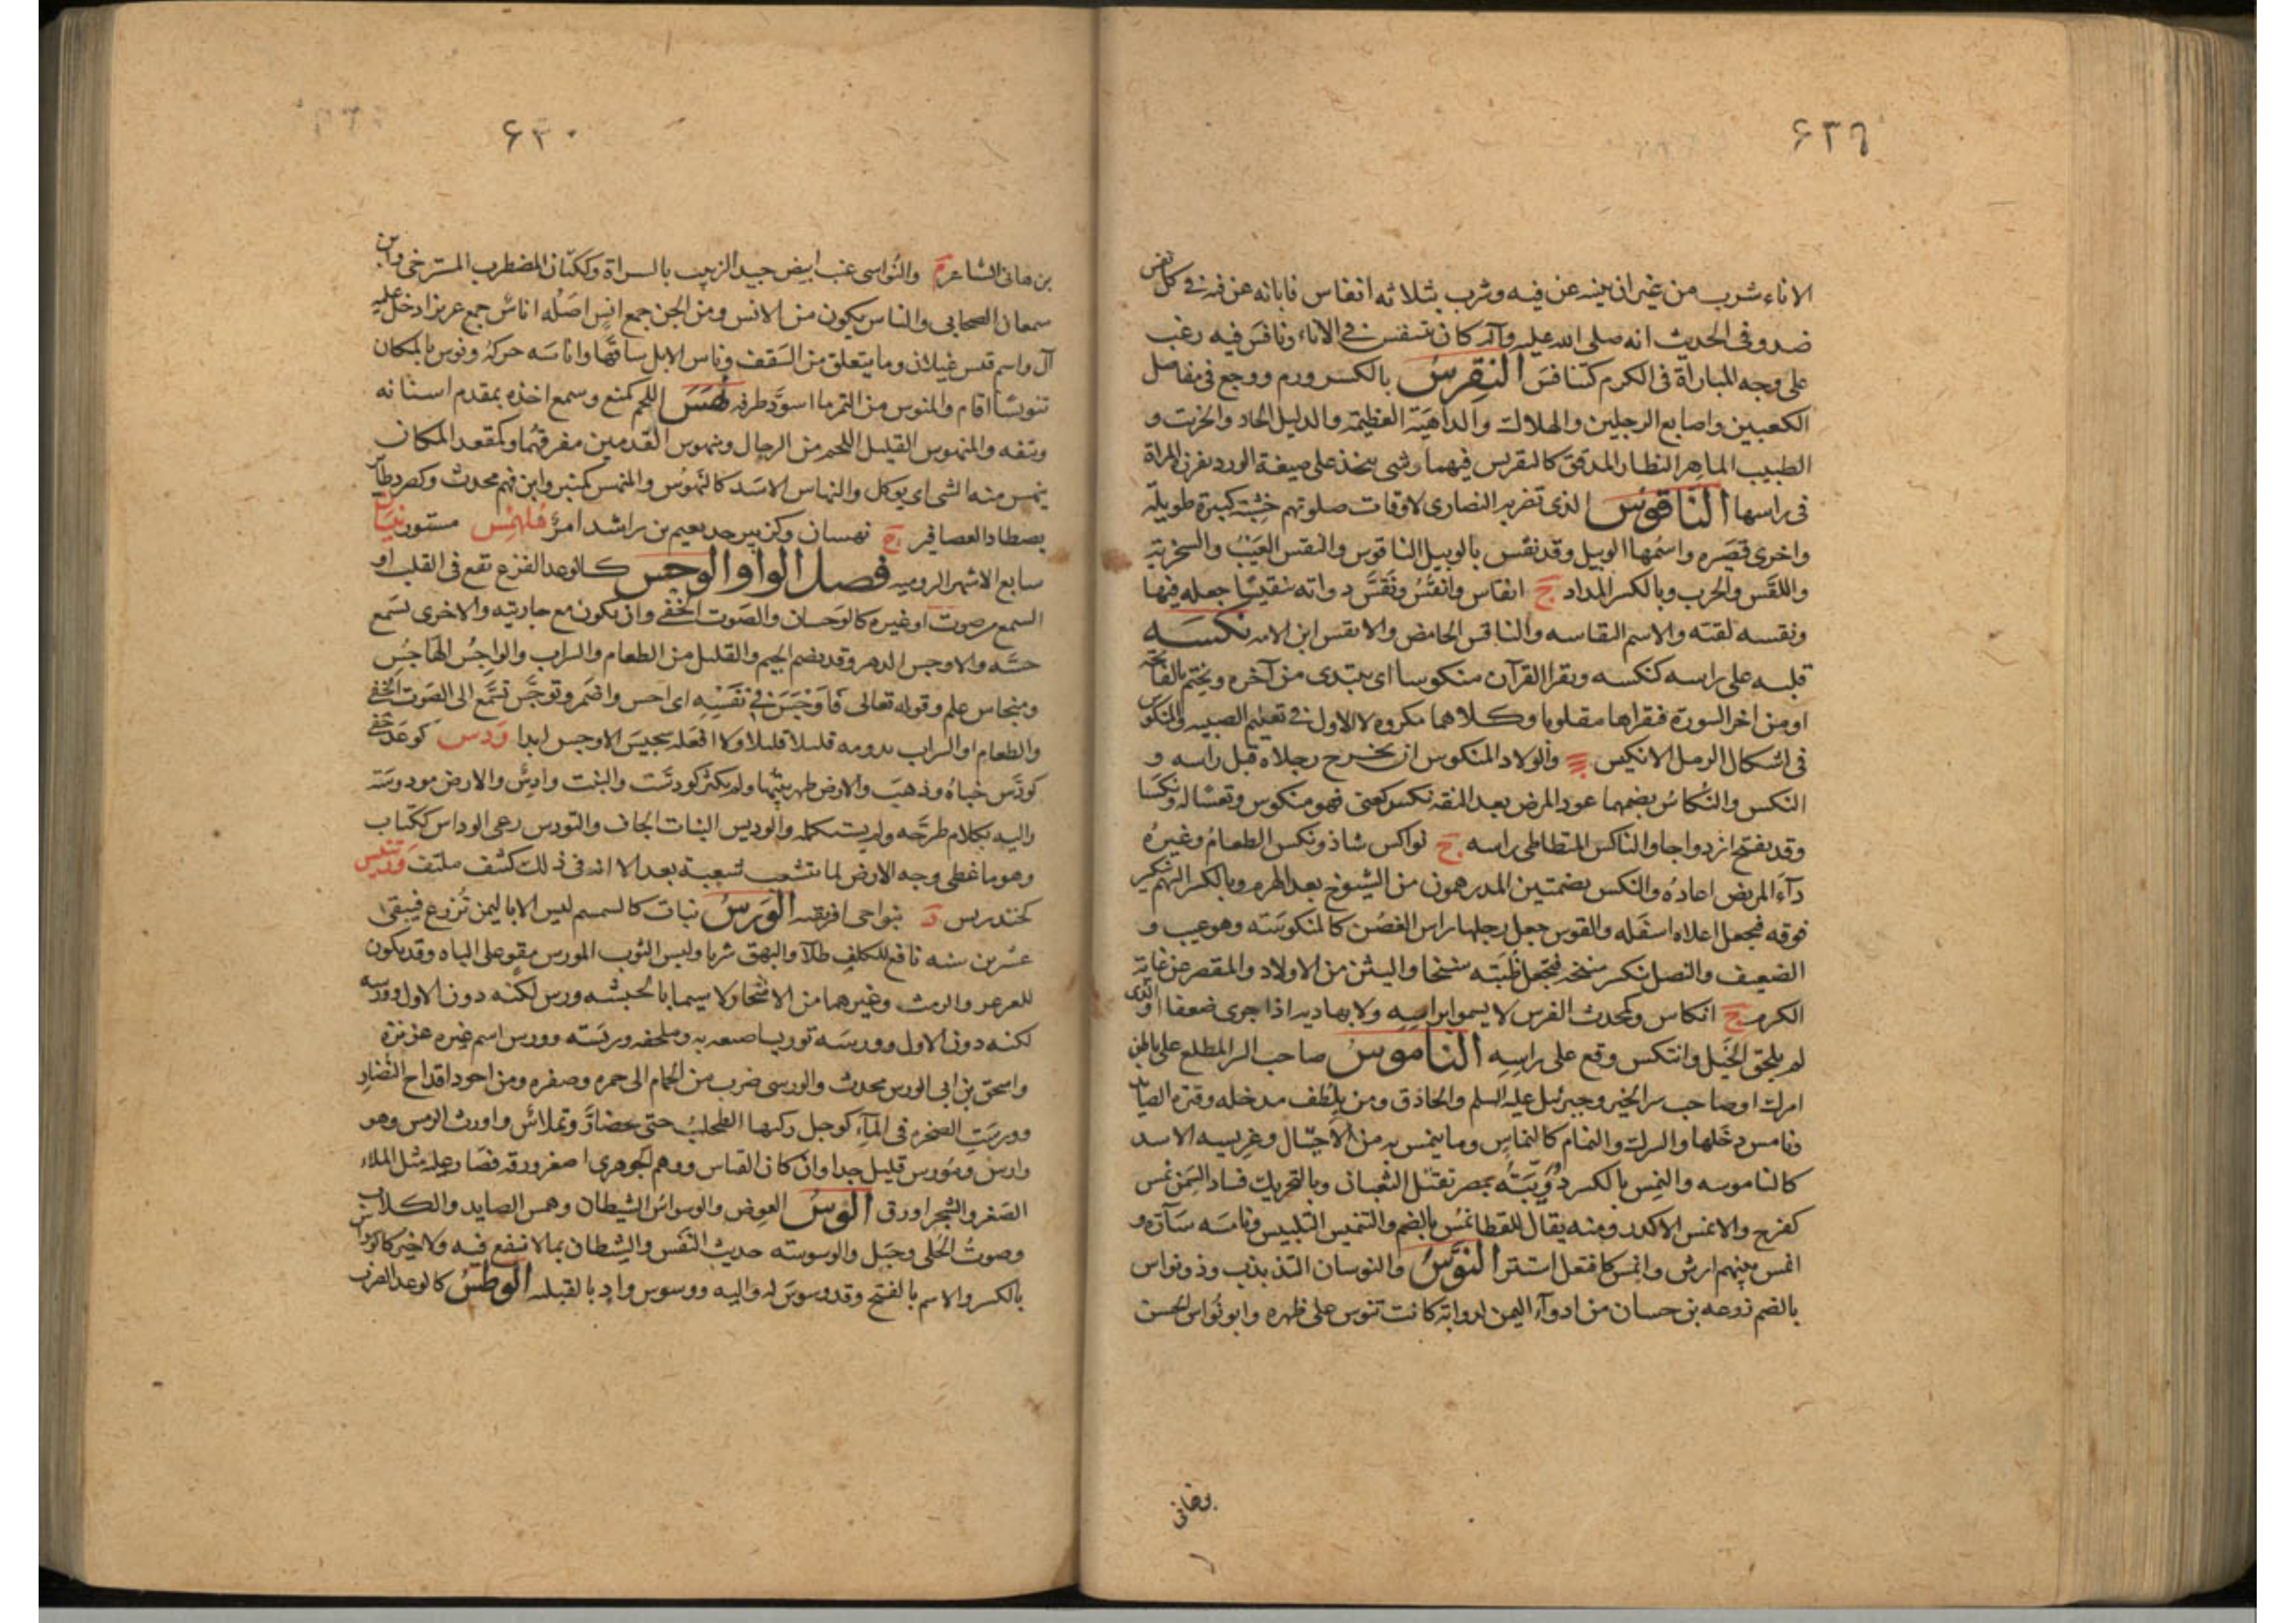 ۶۲۹
الاناء شرب من غير ان يبينه عن فيه وشرب بثلاثه انفاس فابانه عن فيه في كل نفس
ضد وفي الحديث انه صلى الله عليه وآله كان يتنفس في الاناء ونافس فيه رغب
على وجه المباراة في الكرم كتنافس النقرس بالكسر ورم ووجع في مفاصل
الكعبين واصابع الرجلين والهلاك والداهية العظيمة والدليل الحاد والخريت و
الطبيب الماهر النظار المدقق كالنقريس فيهما وشي يتخذ على صيغة الورد تغرزه المراة
في راسها الناقوس الذي تضربه النصارى لاوقات صلوتهم خشبة كبيرة طويلة
واخرى قصيره واسمها الوبيل وقد نقس بالوبيل الناقوس والنقس العيب والسخرية
واللقس والجرب وبالكسر المداد ج انقاس وانقس ونقس دواته تنقيسا جعله فيها
ونقسه لقبه والاسم النقاسه والناقس الحامض والانقس ابن الامه نكسه
قلبه على راسه كنكسه ويقرا القرآن منكوسا اى يبتدى من آخره ويختم بالفاتحة
او من اخر السورة فيقراها مقلوبا وكلاهما مكروه لا الاول في تعليم الصبيه والمنكوس
في اشكال الرمل الانكيس والولاد المنكوس ان يخرج رجلاه قبل راسه و
النكس والنكاس بضمهما عود المرض بعد النقه نكس كعنى فهو منكوس وتعسا له ونكسا
وقد يفتح ازدواجا والناكس المتطاطى راسه ج نواكس شاذ ونكس الطعام وغيره
دآء المريض اعاده والنكس بضمتين المدرهمون من الشيوخ بعد الهرم وبالكسر السهم ينكسر
فوقه فيجعل اعلاه اسفله والقوس جعل رجلها راس الغصن كالمنكوسة وهو عيب و
الضعيف والنصل ينكسر سنخه فتجعل ظبته سنخا واليتن من الاولاد والمقصر عن غاية
الكرم ج انكاس وكمحدث الفرس لا يسمو براسه ولا بهاديه اذا جرى ضعفا او الذي
لم يلحق الخيل وانتكس وقع على راسه الناموس صاحب السر المطلع على باطن
امرك او صاحب سر الخير وجبرئيل عليه السلم والحاذق ومن يلطف مدخله وقترة الصائد
ونامس دخلها والسرك والنمام كالنماس وما ينمس به من الاحتيال وعريسه الاسد
كالناموسه والنمس بالكسر دويبة بمصر تقتل الثعبان وبالتحريك فساد السمن نمس
كفرح والانمس الاكدر ومنه يقال للقطا نمس بالضم والتنميس التلبيس ونامسه ساره و
انمس بينهم ارش وانمس كافتعل استتر النوس والنوسان التذبذب وذو نواس
بالضم زرعه بن حسان من ادوآء اليمن لذوابة كانت تنوس على ظهره وابو نواس الحسن
بن هانى
۶۳۰
بن هانى الشاعر م والنواسى عنب ابيض جيد الزبيب بالسراة وككتان المضطرب المسترخى وابن
سمعان الصحابى والناس يكون من الانس ومن الجن جمع انس اصله اناس جمع عزيز ادخل عليه
آل واسم قيس عيلان وما يتعلق من السقف وناس الابل ساقها واناسه حركه ونوس بالمكان
تنويسا اقام والمنوس من التمر ما اسود طرفه نهس اللحم كمنع وسمع اخذه بمقدم اسنانه
ونتفه والمنهوس القليل اللحم من الرجال ومنهوس القدمين معرقهما وكمقعد المكان
ينهس منه الشى اى يوكل والنهاس الاسد كالنهوس والمنهس كمنبر وابن فهم محدث وكصرد طائر
يصطاد العصافير ج نهسان وكزبير جد نعيم بن راشد مستور نيسان
سابع الاشهر الروميه فصل الواو الوجس كالوعد الفزع تقع في القلب او
السمع من صوت او غيره كالوجسان والصوت الخفى وان يكون مع جاريته والاخرى تسمع
حسه والاوجس الدهر وقد يضم الجيم والقليل من الطعام والشراب والواجس الهاجس
وميجاس علم وقوله تعالى فاوجس في نفسه اى احس واضمر وتوجس تسمع الى الصوت الخفى
والطعام او الشراب تذوقه قليلا قليلا ولا افعله سجيس الاوجس ابدا ودس كوعد خفى
كودس خباه وذهب والارض ظهر نبتها ولم يكثر كودست والنبت وادس والارض مودوسة
واليه بكلام طرحه ولم يستكمله والوديس النبات الجاف والتودس رعى الوداس ككتاب
وهو ما غطى وجه الارض لما تتشعب شعبه بعد الا انه في ذلك كشف ملتف ورتنيس
كخندريس د بنواحى افريقيه الورس نبات كالسمسم ليس الا باليمن تزرع فيبقى
عشرين سنه نافع للكلف طلآء والبهق شربا ولبس الثوب المورس مقو على الباه وقد يكون
للعرعر والرمث وغيرهما من الاشجار لا سيما بالحبشه ورس لكنه دون الاول وورسه
لكنه دون الاول وورسه توريسا صبغه به وملحفه وريسه وورس اسم عنز غزيره
واسحق بن ابى الورس محدث والورسى ضرب من الحمام الى حمره وصفره ومن اجود اقداح النضار
وورست الصخره في المآء كوجل ركبها الطحلب حتى تخضار وتملاس واورث الرمس وهو
وارس ومورس قليل جدا وان كان القياس ووهم الجوهرى اصفر ورقه فصار عليه مثل الملاء
الصفر والشجر اورق الوس العوض والوسواس الشيطان وهمس الصايد والكلاب
وصوت الحلى وجبل والوسوسته حديث النفس والشيطان بما لا نفع فيه ولا خير كالوسواس
بالكسر والاسم بالفتح وقد وسوس له واليه ووسوس واد بالقبليه الوطس كالوعد الضرب